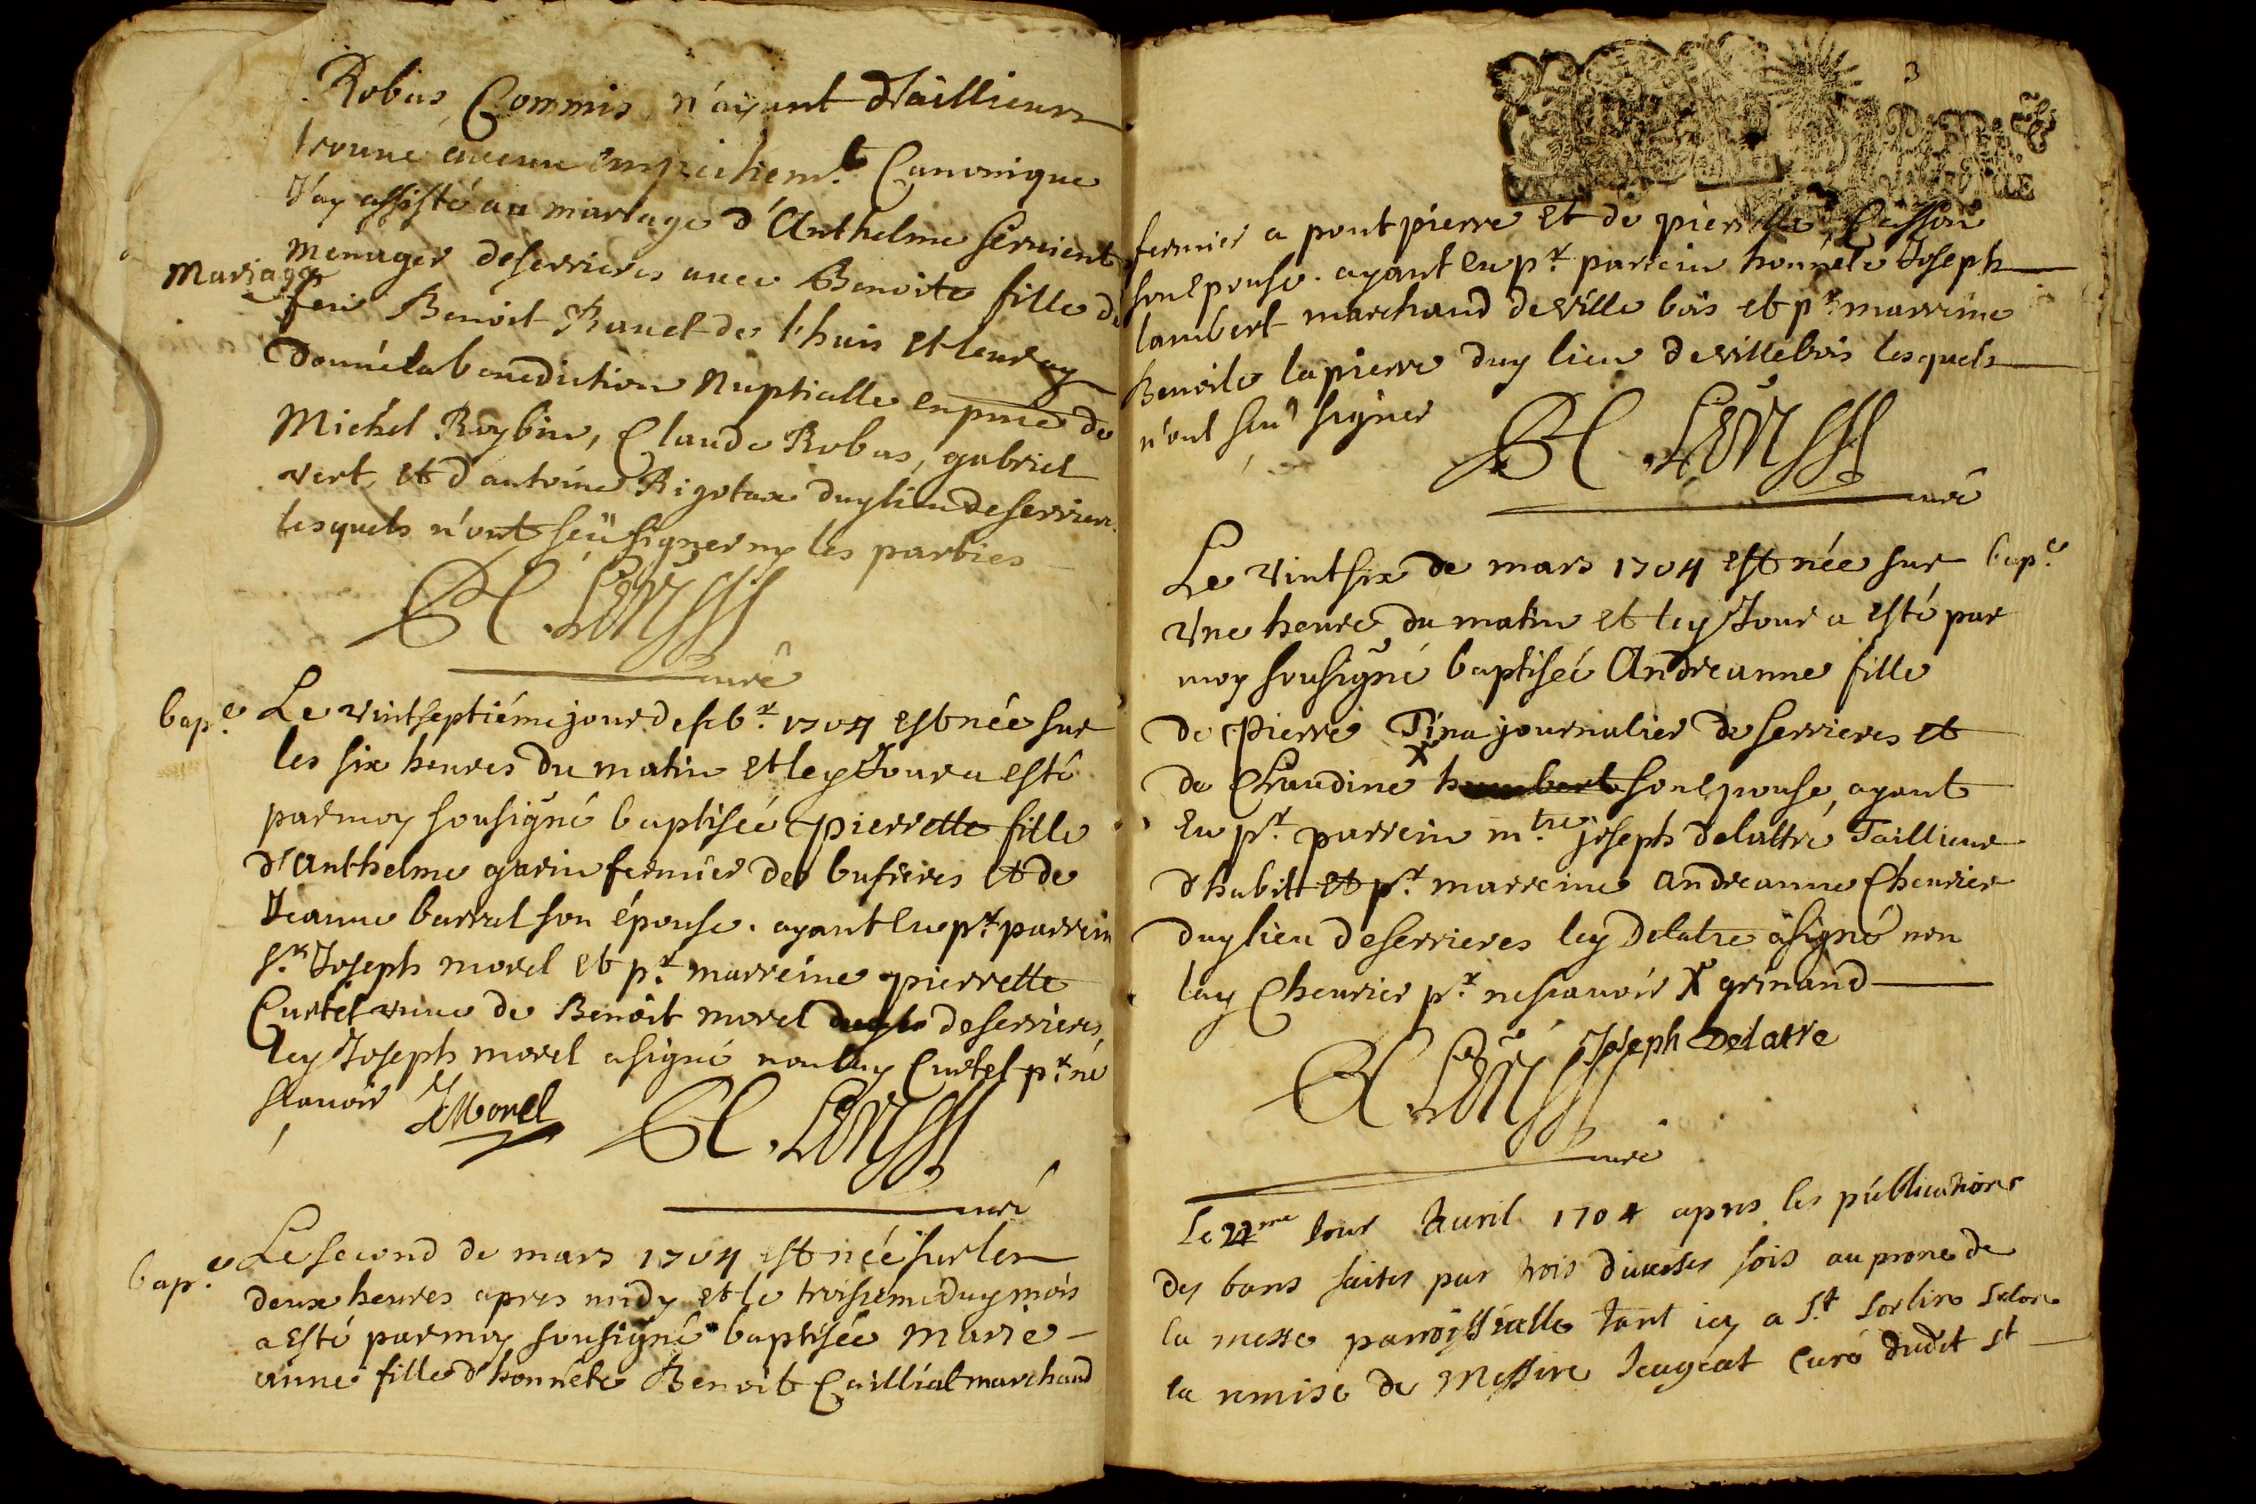 Robas Commis n'ayant d'aillieurs
trouué aucun empechem.t Canonique
J'ay assisté au mariage d'Anthelme seruient
menager de serrieres auec Benoite fille de
Mariage
feu Benoit Rauet des l'huis et leur ay
donné la benediction nuptialle en pnce de
Michel Roybin, Claude Robas, gabriel
vert et d'antoine Rigotax duy lieu de serrier.
lesquels n'ont sçeu signer ny les parties
curé
bap.e Le vintseptiéme jour de feb.r 1704 est née sur
les six heures du matin et le y Jour a esté
par moy sousigné baptiseé pierrette fille
d'Anthelme garin fermier des bufieres et de
Jeanne barral son épouse. ayant eu p.r parrein
s.r Joseph morel et p.r marreine pierrette
Curtel vuue de Benoit morel de serrieres,
le y Joseph morel a signé non lay Curtel p.r ne
scauoir JMorel
curé
bap.e Le second de mars 1704 est née sur les
deux heures apres midy et le troisieme duy mois
a esté par moy sousigné baptisée Marie
anne fille d'honnéte Benoit Cailliat marchand
3
fermier a pont pierre et de pierrette
son epouse. ayant eu p.r parrein honnéte Joseph
lambert marchand de ville bois et p.r marreine
Benoite lapierre duy lieu de villebois lesquels
n'ont sceu signer
curé
Le vintsix de mars 1704 est née sur bap.e
vne heure du matin et le y Jour a esté par
moy sousigné baptiseé Andreanne fille
de Pierre Tina journalier de serrieres et
de Claudine X humbert son epouse, ayant
eu p.r parrein m.tre joseph delattre Taillieur
d'habitt et p.r marreine andreanne Cheurier
duy lieu de serrieres le y Delatre a signé non
lay Cheurier p.r ne scauoir X grinand
Joseph Delatre
curé
Le 22me Jour d'auril 1704 apres les publications
des bans faites par trois diuerses fois au prone de
la messe parroissialle tant icy a S.t Sorlin selon
la remise de Messire Curé dudit St